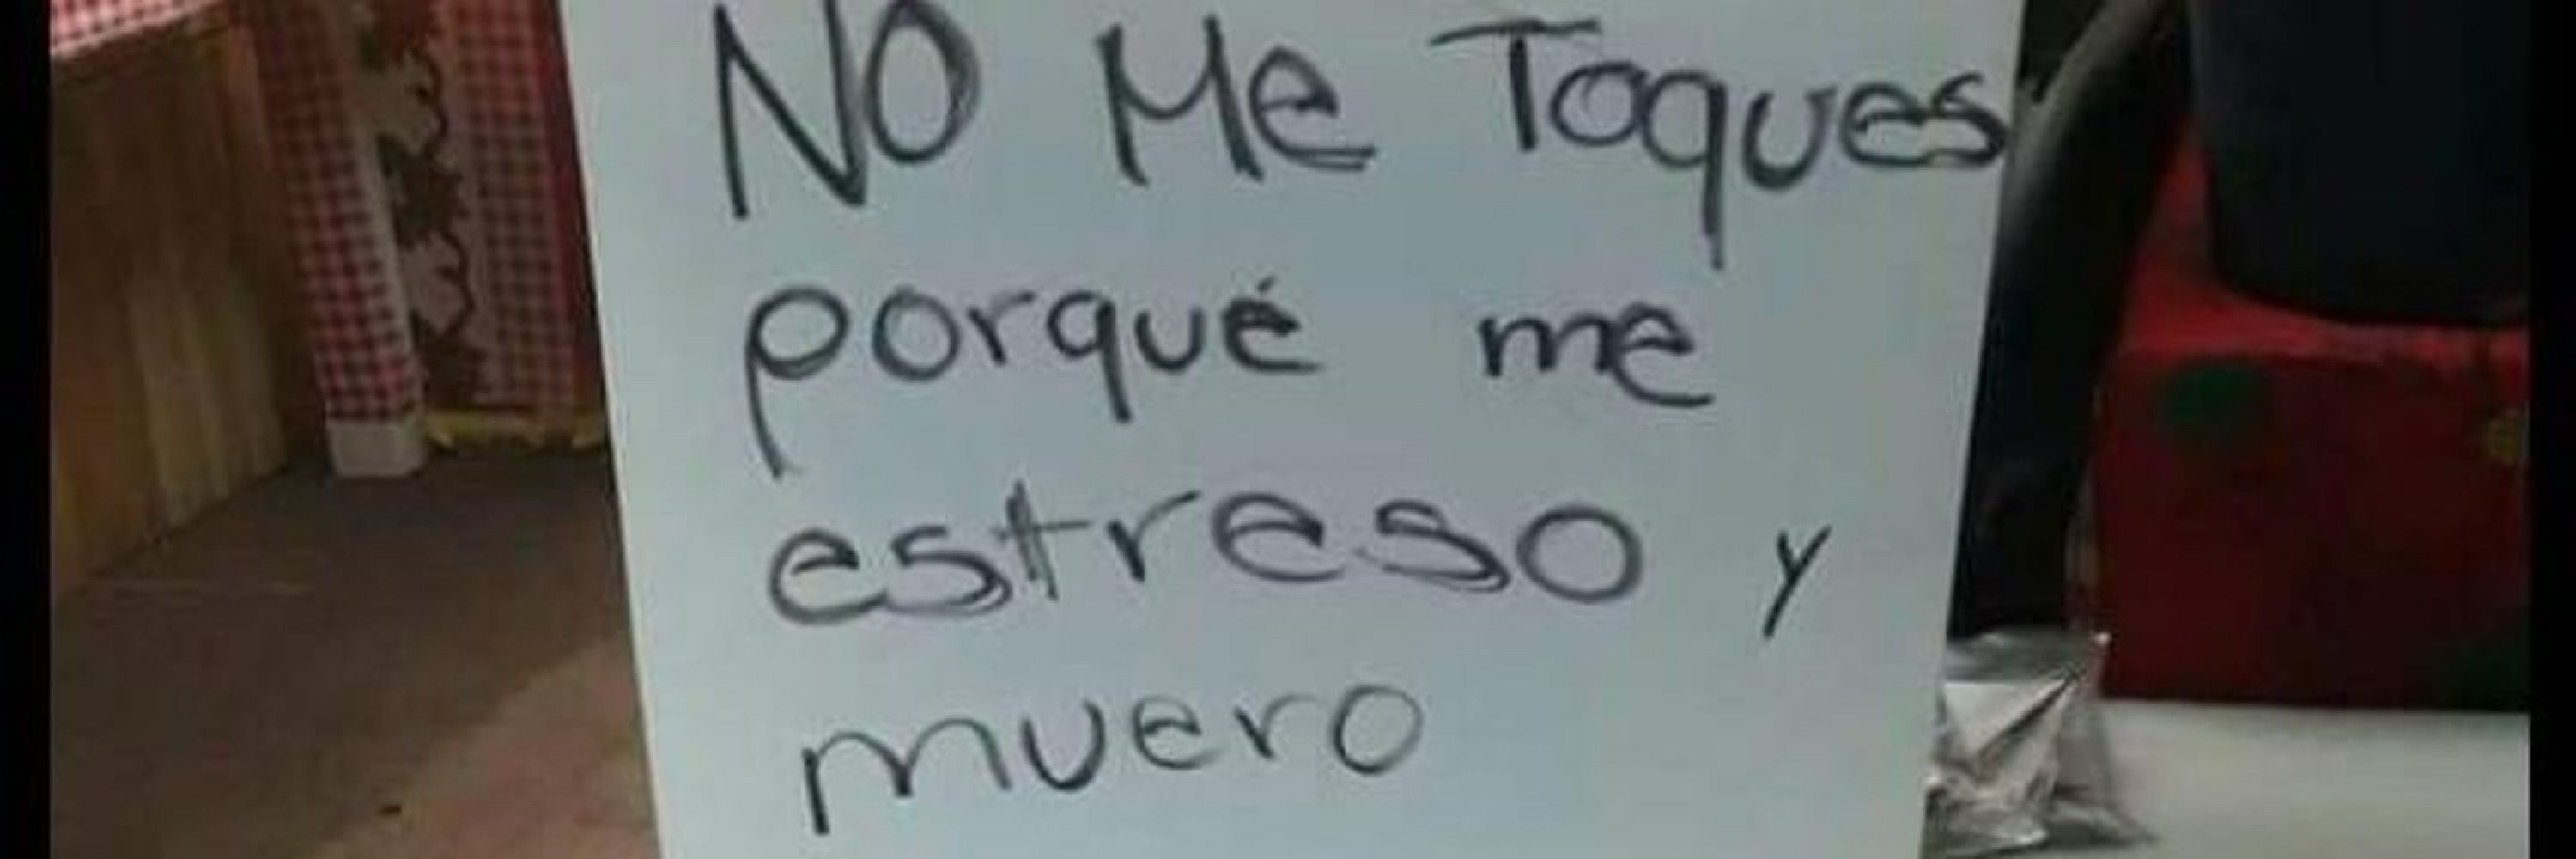 NO Me Toques
porqué me
estreso y
muero